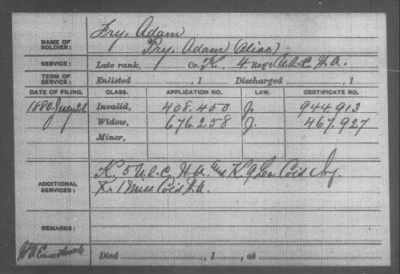 NAME OF SOLDIER: Fry, Adam
Fry, Adam (Alias)
SERVICE: Late rank, Co. K, 4 Reg't U.S.C.H.A.
TERM OF SERVICE: Enlisted , 1 Discharged , 1
DATE OF FILING. CLASS. APPLICATION NO. LAW. CERTIFICATE NO.
1880, Invalid, 408.450 J. 944.913
Widow, 676.258 J. 467.927
Minor,
ADDITIONAL SERVICES: K. 5 U.S.C. H.A. K 9 Cold Inf
K. 1 Miss Cold H.A.
REMARKS:
Died , 1 , at